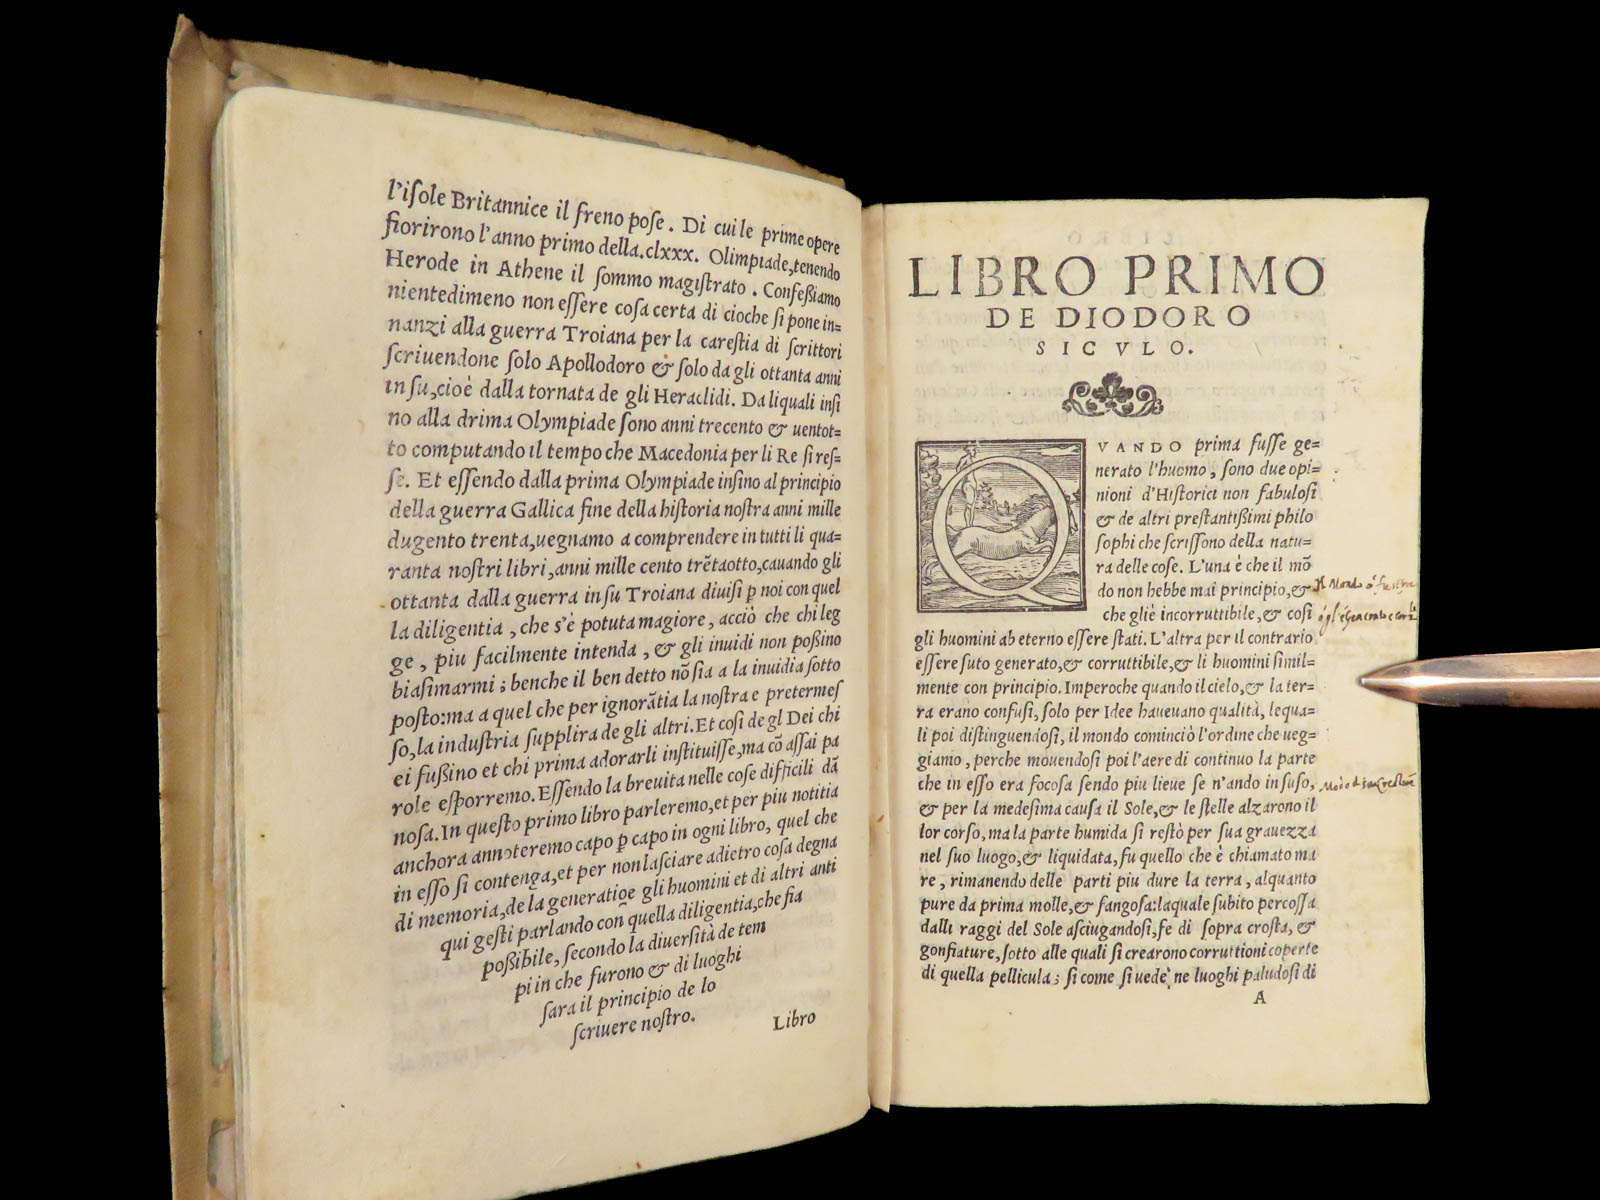 l'iſole Britannice il freno poſe. Di cui le prime opere
fiorirono l'anno primo della.clxxx. Olimpiade,tenendo
Herode in Athene il ſommo magiſtrato. Confeßiamo
nientedimeno non eſſere coſa certa di cioche ſi pone in=
nanzi alla guerra Troiana per la careſtia di ſcrittori
ſcriuendone ſolo Apollodoro & ſolo da gli ottanta anni
in ſu,cioè dalla tornata de gli Heraclidi. Da liquali inſi
no alla drima Olympiade ſono anni trecento & uentot=
to computando il tempo che Macedonia per li Re ſi reſ=
ſe. Et eſſendo dalla prima Olympiade inſino al principio
della guerra Gallica fine della hiſtoria noſtra anni mille
dugento trenta,uegnamo a comprendere in tutti li qua=
ranta noſtri libri,anni mille cento trẽtaotto,cauando gli
ottanta dalla guerra in ſu Troiana diuiſi ꝑ noi con quel
la diligentia, che s'è potuta magiore, acciò che chi leg
ge, piu facilmente intenda, & gli inuidi non poßino
biaſimarmi; benche il ben detto nõ ſia a la inuidia ſotto
poſto:ma a quel che per ignorãtia la noſtra e pretermeſ
ſo,la induſtria ſupplira de gli altri.Et coſi de gl Dei chi
ei fußino et chi prima adorarli inſtituiſſe,ma cõ aſſai pa
role eſporremo.Eſſendo la breuita nelle coſe difficili dã
noſa.In queſto primo libro parleremo,et per piu notitia
anchora annoteremo capo ꝑ capo in ogni libro, quel che
in eſſo ſi contenga,et per non laſciare adietro coſa degna
di memoria,de la generatiõe gli huomini et di altri anti
qui geſti parlando con quella diligentia,che fia
poßibile, ſecondo la diuerſità de tem
pi in che furono & di luoghi
ſara il principio de lo
ſcriuere noſtro.
Libro
LIBRO PRIMO
DE DIODORO
SICVLO.
QVANDO prima fuſſe ge=
nerato l'huomo, ſono due opi=
nioni d'Hiſtorici non fabuloſi
& de altri preſtantißimi philo
ſophi che ſcriſſono della natu=
ra delle coſe. L'una è che il mõ
do non hebbe mai principio,&
che gliè incorruttibile,& coſi
gli huomini ab eterno eſſere ſtati. L'altra per il contrario
eſſere ſuto generato,& corruttibile,& li huomini ſimil=
mente con principio. Imperoche quando il cielo,& la ter=
ra erano confuſi, ſolo per Idee haueuano qualità, lequa=
li poi diſtinguendoſi, il mondo cominciò l'ordine che ueg=
giamo, perche mouendoſi poi l'aere di continuo la parte
che in eſſo era focoſa ſendo piu lieue ſe n'ando in ſuſo,
& per la medeſima cauſa il Sole,& le ſtelle alzarono il
lor corſo, ma la parte humida ſi reſtò per ſua grauezza
nel ſuo luogo,& liquidata, fu quello che è chiamato ma
re, rimanendo delle parti piu dure la terra, alquanto
pure da prima molle,& fangoſa:laquale ſubito percoſſa
dalli raggi del Sole aſciugandoſi,fe di ſopra croſta, &
gonfiature, ſotto alle quali ſi crearono corruttioni coperte
di quella pellicula; ſi come ſi uede, ne luoghi paludoſi di
A